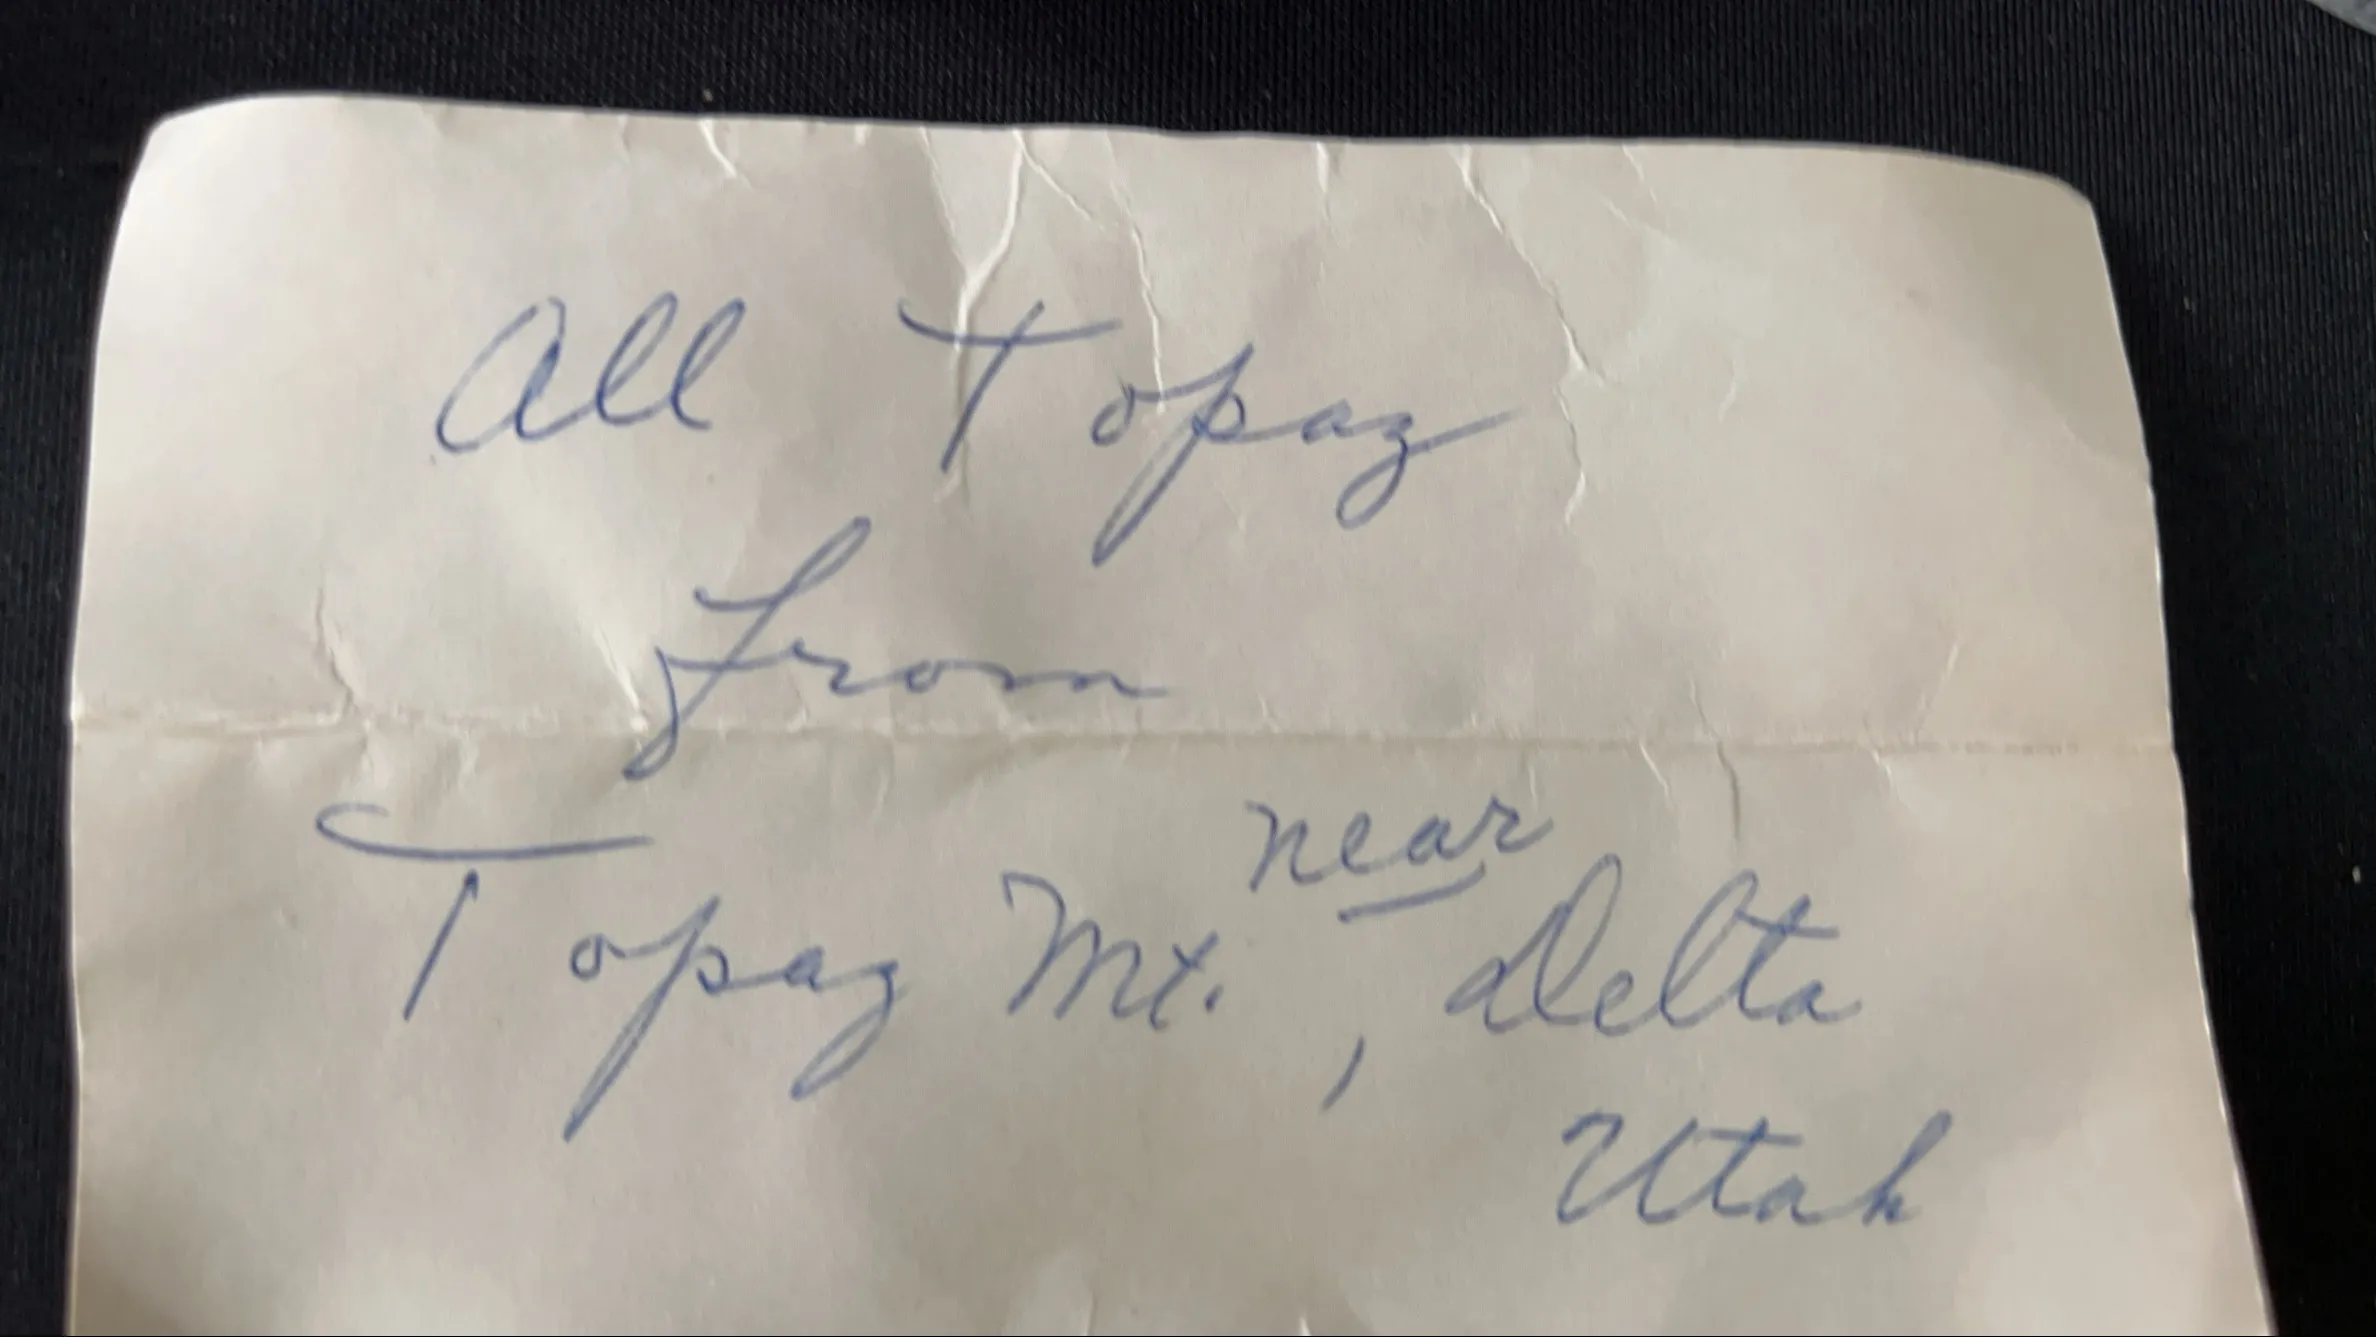 All Topaz
from
Topaz Mt. near, Delta
Utah